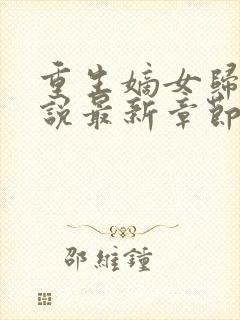 重生嫡女歸
說最新章節
邵維鐘